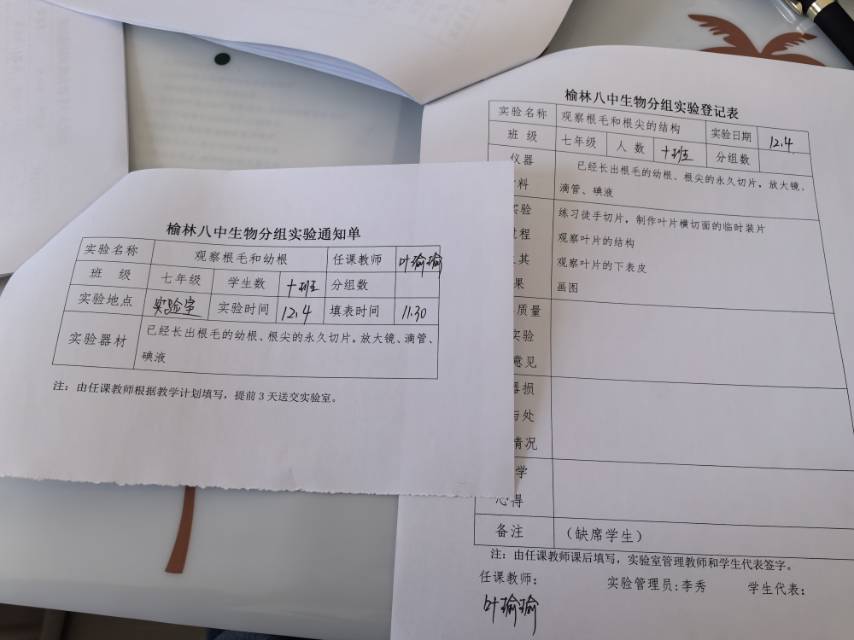 榆林八中生物分组实验通知单
实验名称 观察根毛和幼根 任课教师 叶瑜瑜
班 级 七年级 学生数 十班 分组数
实验地点 实验室 实验时间 12.4 填表时间 11.30
实验器材 已经长出根毛的幼根、根尖的永久切片。放大镜、滴管、
碘液
注：由任课教师根据教学计划填写，提前3天送交实验室。
榆林八中生物分组实验登记表
实验名称 观察根毛和根尖的结构 实验日期 12.4
班 级 七年级 人 数 十班 分组数
仪器 已经长出根毛的幼根、根尖的永久切片。放大镜、
料 滴管、碘液
实验 练习徒手切片，制作叶片横切面的临时装片
过程 观察叶片的结构
其 观察叶片的下表皮
果 画图
质量
实验
意见
损
与处
情况
学
心得
备注 （缺席学生）
注：由任课教师课后填写，实验室管理教师和学生代表签字。
任课教师： 实验管理员：李秀 学生代表：
叶瑜瑜